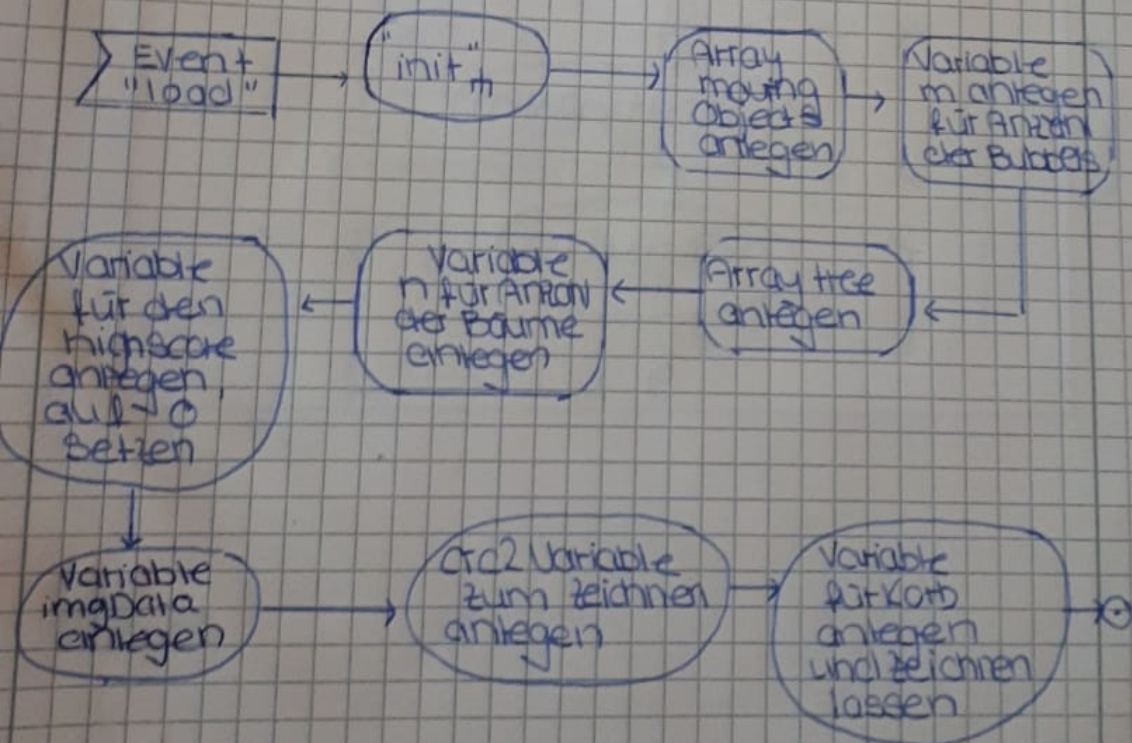 Event
"load"
"init"
Array
moving
Objects
anlegen
Variable
m anlegen
für Anzahl
der Bubbels
Array tree
anlegen
Variable
n für Anzahl
der Bäume
anlegen
Variable
für den
highscore
anlegen,
auf 0
setzen
Variable
imgData
anlegen
crc2 Variable
zum zeichnen
anlegen
Variable
für Korb
anlegen
und zeichnen
lassen